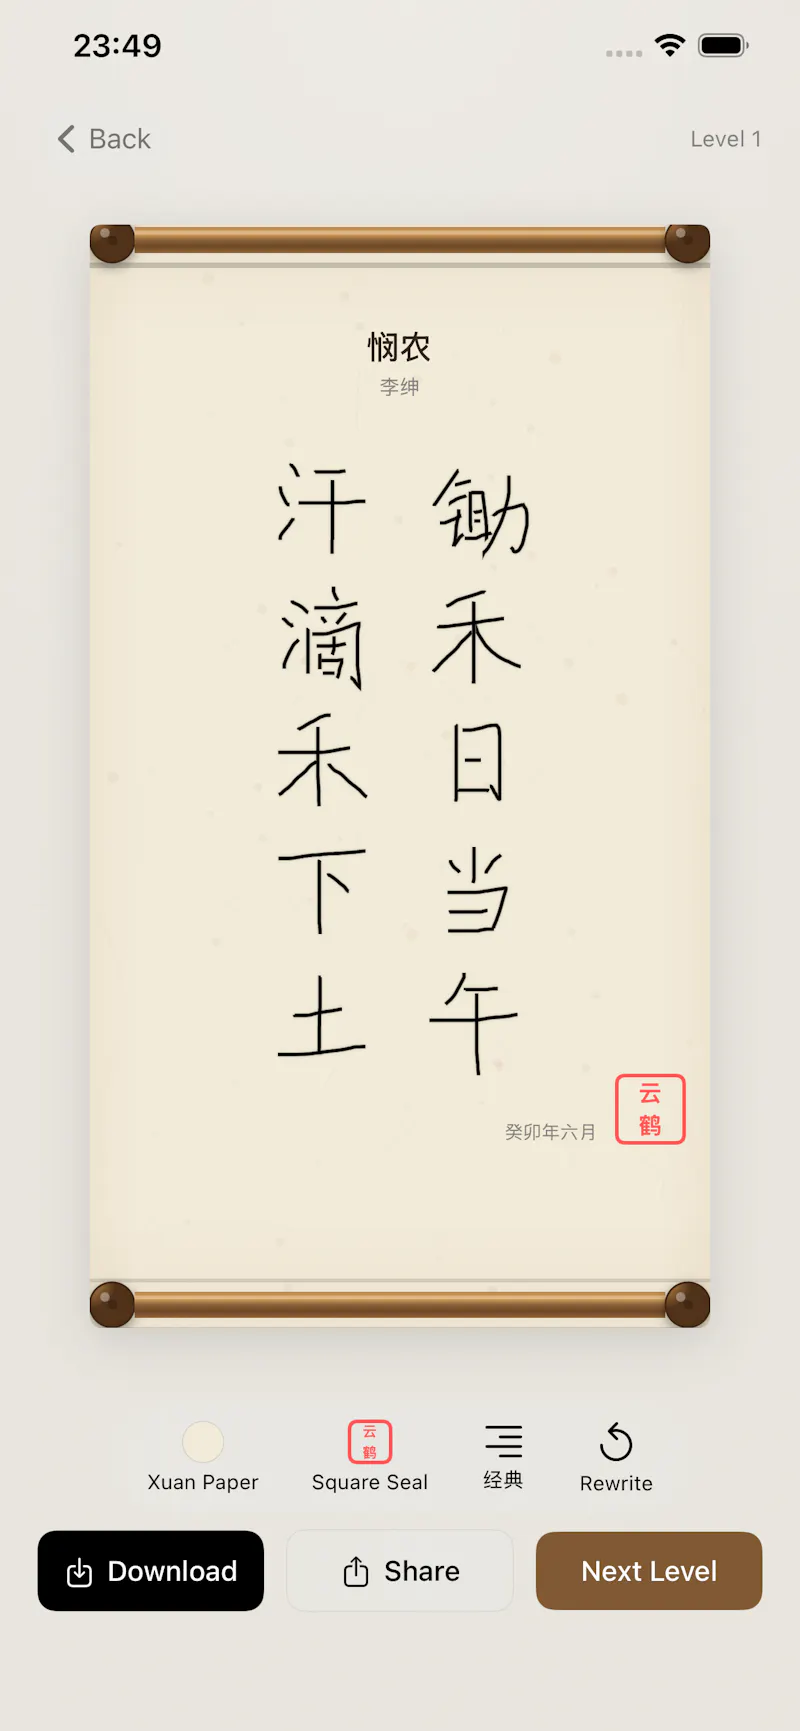 23:49
Back
Level 1
悯农
李绅
锄禾日当午
汗滴禾下土
癸卯年六月
云鹤
Xuan Paper
云鹤
Square Seal
经典
Rewrite
Download
Share
Next Level